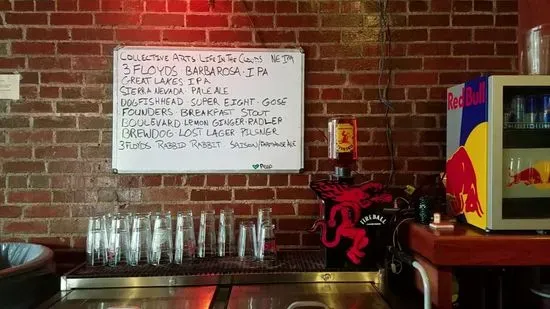 COLLECTIVE ARTS LIFE IN THE CLOUDS NE IPA
3 FLOYDS BARBAROSA · IPA
GREAT LAKES IPA
SIERRA NEVADA PALE ALE
DOGFISHHEAD SUPER EIGHT · GOSE
FOUNDERS BREAKFAST STOUT
BOULEVARD LEMON GINGER RADLER
BREWDOG LOST LAGER PILSNER
3 FLOYDS RABBID RABBIT SAISON/FARMHOUSE ALE
FIREBALL
Red Bull